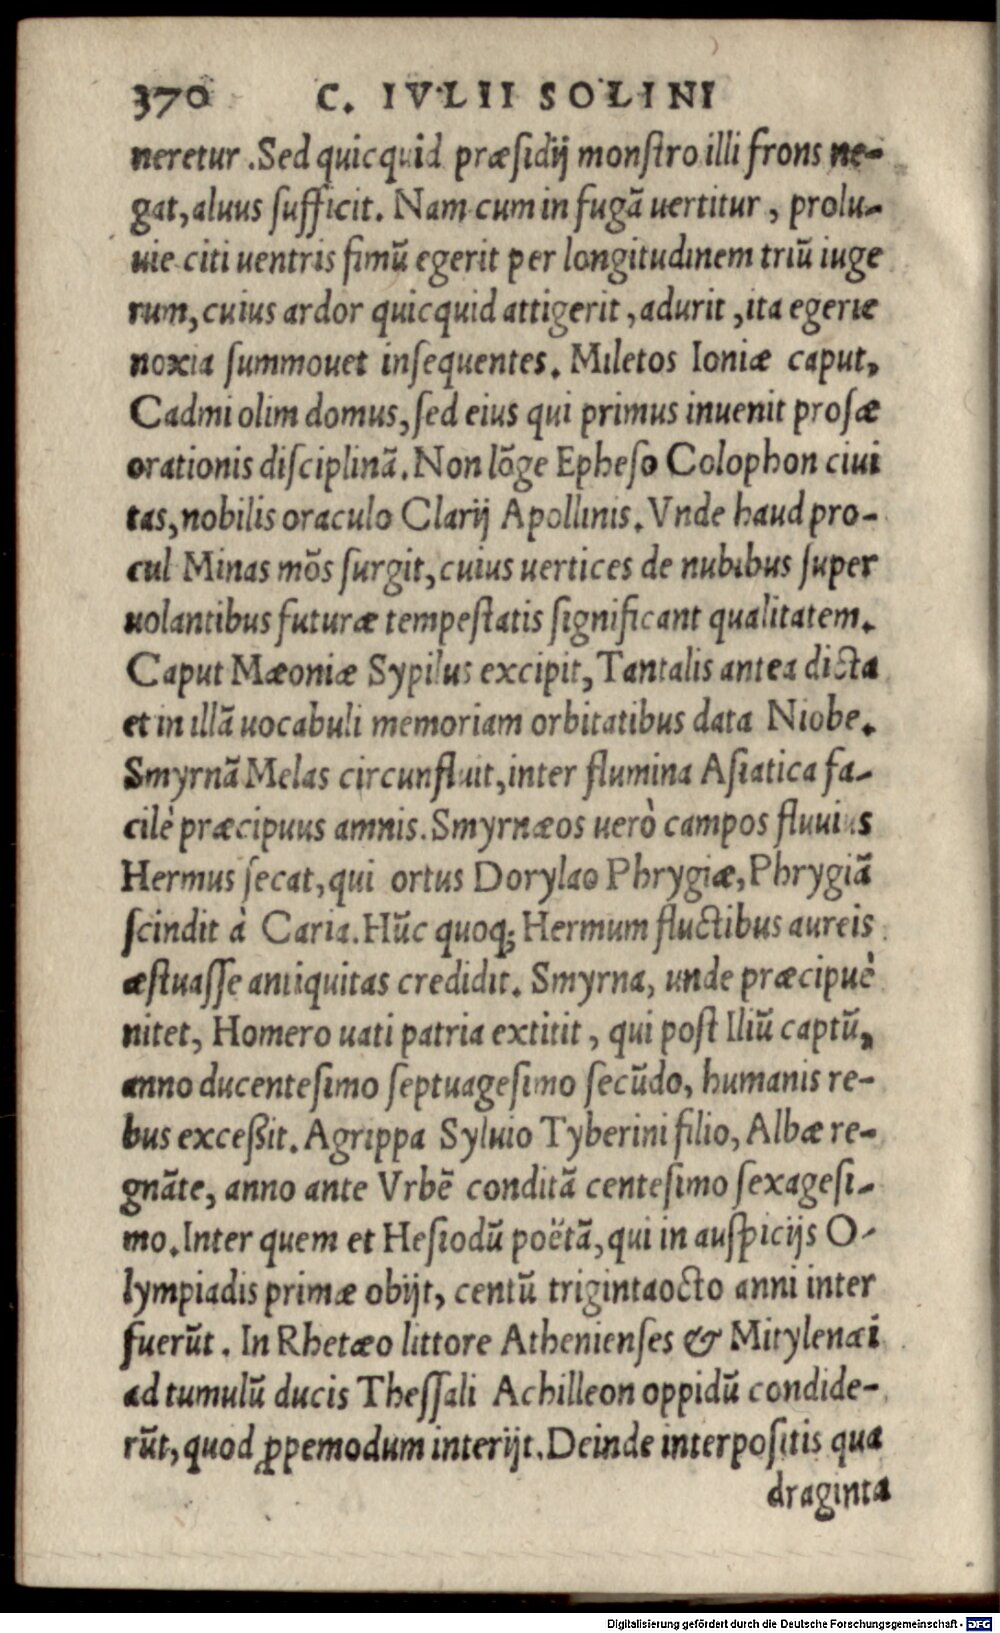 370 C. IVLII SOLINI
neretur .Sed quicquid præsidij monstro illi frons ne-
gat, aluus sufficit. Nam cum in fugã uertitur , prolu-
uie citi uentris fimũ egerit per longitudinem triũ iuge
rum, cuius ardor quicquid attigerit , adurit , ita egerie
noxia summouet insequentes. Miletos Ioniæ caput,
Cadmi olim domus, sed eius qui primus inuenit prosæ
orationis disciplinã. Non lõge Epheso Colophon ciui
tas, nobilis oraculo Clarij Apollinis. Vnde haud pro-
cul Minas mõs surgit, cuius uertices de nubibus super
uolantibus futuræ tempestatis significant qualitatem.
Caput Mæoniæ Sypilus excipit, Tantalis antea dicta
et in illã uocabuli memoriam orbitatibus data Niobe.
Smyrnã Melas circunfluit, inter flumina Asiatica fa-
cilè præcipuus amnis. Smyrnæos uerò campos fluuius
Hermus secat, qui ortus Dorylao Phrygiæ, Phrygiã
scindit à Caria. Hũc quoq; Hermum fluctibus aureis
æstuasse antiquitas credidit. Smyrna, unde præcipuè
nitet, Homero uati patria extitit , qui post Iliũ captũ,
anno ducentesimo septuagesimo secũdo, humanis re-
bus exceßit. Agrippa Syluio Tyberini filio, Albæ re-
gnãte, anno ante Vrbẽ conditã centesimo sexagesi-
mo. Inter quem et Hesiodũ poëtã, qui in auspicijs O-
lympiadis primæ obijt, centũ trigintaocto anni inter
fuerũt . In Rhetæo littore Athenienses & Mitylenæi
ad tumulũ ducis Thessali Achilleon oppidũ condide-
rũt, quod ꝓpemodum interijt. Deinde interpositis qua
draginta
Digitalisierung gefördert durch die Deutsche Forschungsgemeinschaft - DFG